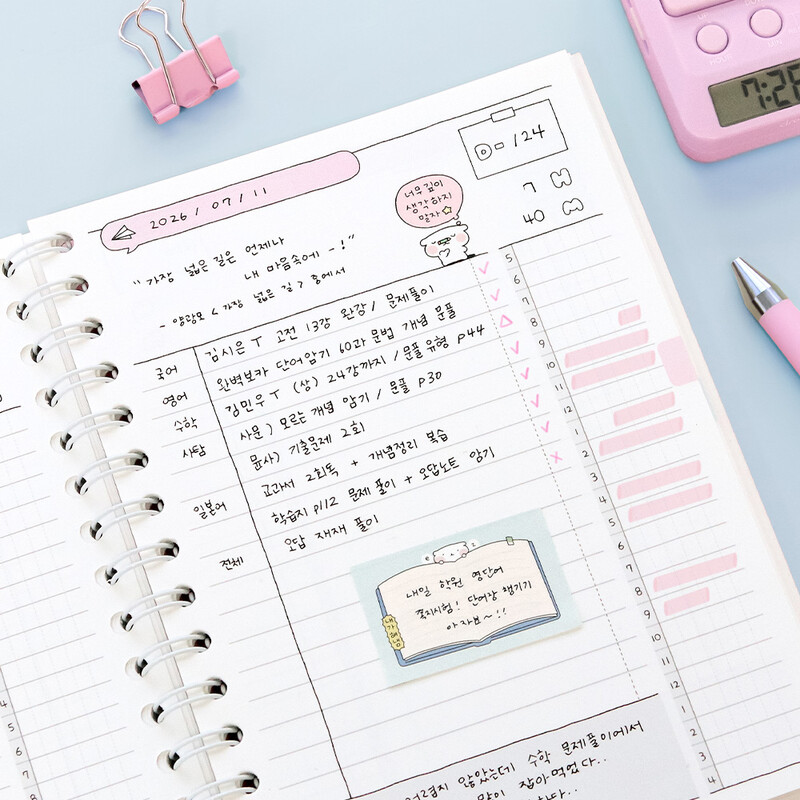 2026 / 07 / 11
D-124
너무 깊이
생각하지
말자
7 H
40 M
"가장 넓은 길은 언제나
내 마음속에-!"
- 양광모 <가장 넓은 길> 중에서
국어 김시은T 고전 13강 완강 / 문제풀이
영어 완벽보카 단어암기 60과 문법 개념 문풀
수학 김민우T (상) 24강까지 / 문풀 유형 p44
사탐 사문) 모르는 개념 암기 / 문풀 p30
윤사) 기출문제 2회
교과서 2회독 + 개념정리 복습
일본어 학습지 p112 문제 풀이 + 오답노트 암기
전체 오답 재재 풀이
내일 학원 영단어
쪽지시험! 단어장 챙기기
아자뵤~!!
5
6
7
8
9
10
11
12
1
2
3
4
5
6
7
8
9
10
11
12
1
2
3
4
않았는데 수학 문제풀이에서
많이 잡아먹었다..
7:26